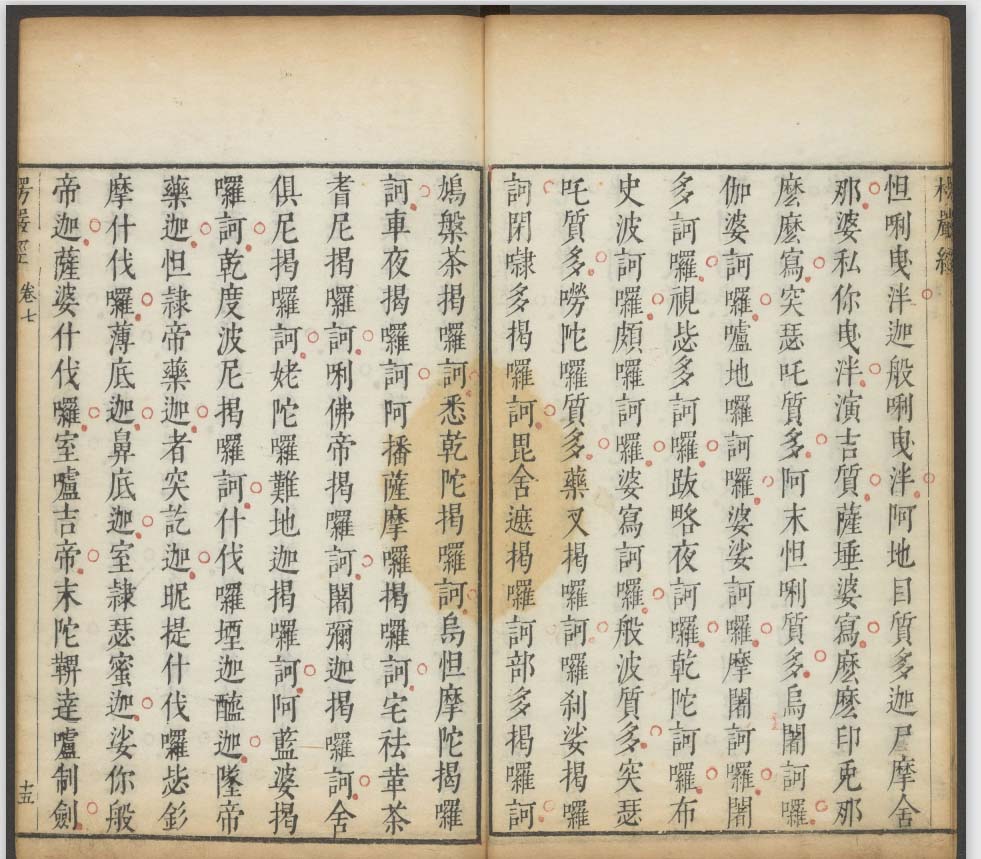 楞嚴經
怛唎曳泮迦般唎曳泮阿地目質多迦尸摩舍
那婆私你曳泮演吉質薩埵婆寫麽麽印兎那
麽麽寫突瑟吒質多阿末怛唎質多烏闍訶囉
伽婆訶囉嚧地囉訶囉婆娑訶囉摩闍訶囉闍
多訶囉視毖多訶囉跋略夜訶囉乾陀訶囉布
史波訶囉頗囉訶囉婆寫訶囉般波質多突瑟
吒質多嘮陀囉質多藥叉揭囉訶囉剎娑揭囉
訶閉㘑多揭囉訶毘舍遮揭囉訶部多揭囉訶
鳩槃茶揭囉訶悉乾陀揭囉訶烏怛摩陀揭囉
訶車夜揭囉訶阿播薩摩囉揭囉訶宅袪革茶
耆尼揭囉訶唎佛帝揭囉訶闍彌迦揭囉訶舍
俱尼揭囉訶姥陀囉難地迦揭囉訶阿藍婆揭
囉訶乾度波尼揭囉訶什伐囉堙迦醯迦墜帝
藥迦怛隸帝藥迦者突訖迦昵提什伐囉毖釤
摩什伐囉薄底迦鼻底迦室隸瑟蜜迦娑你般
帝迦薩婆什伐囉室嚧吉帝末陀鞞達嚧制劍
楞嚴經 卷七 十五